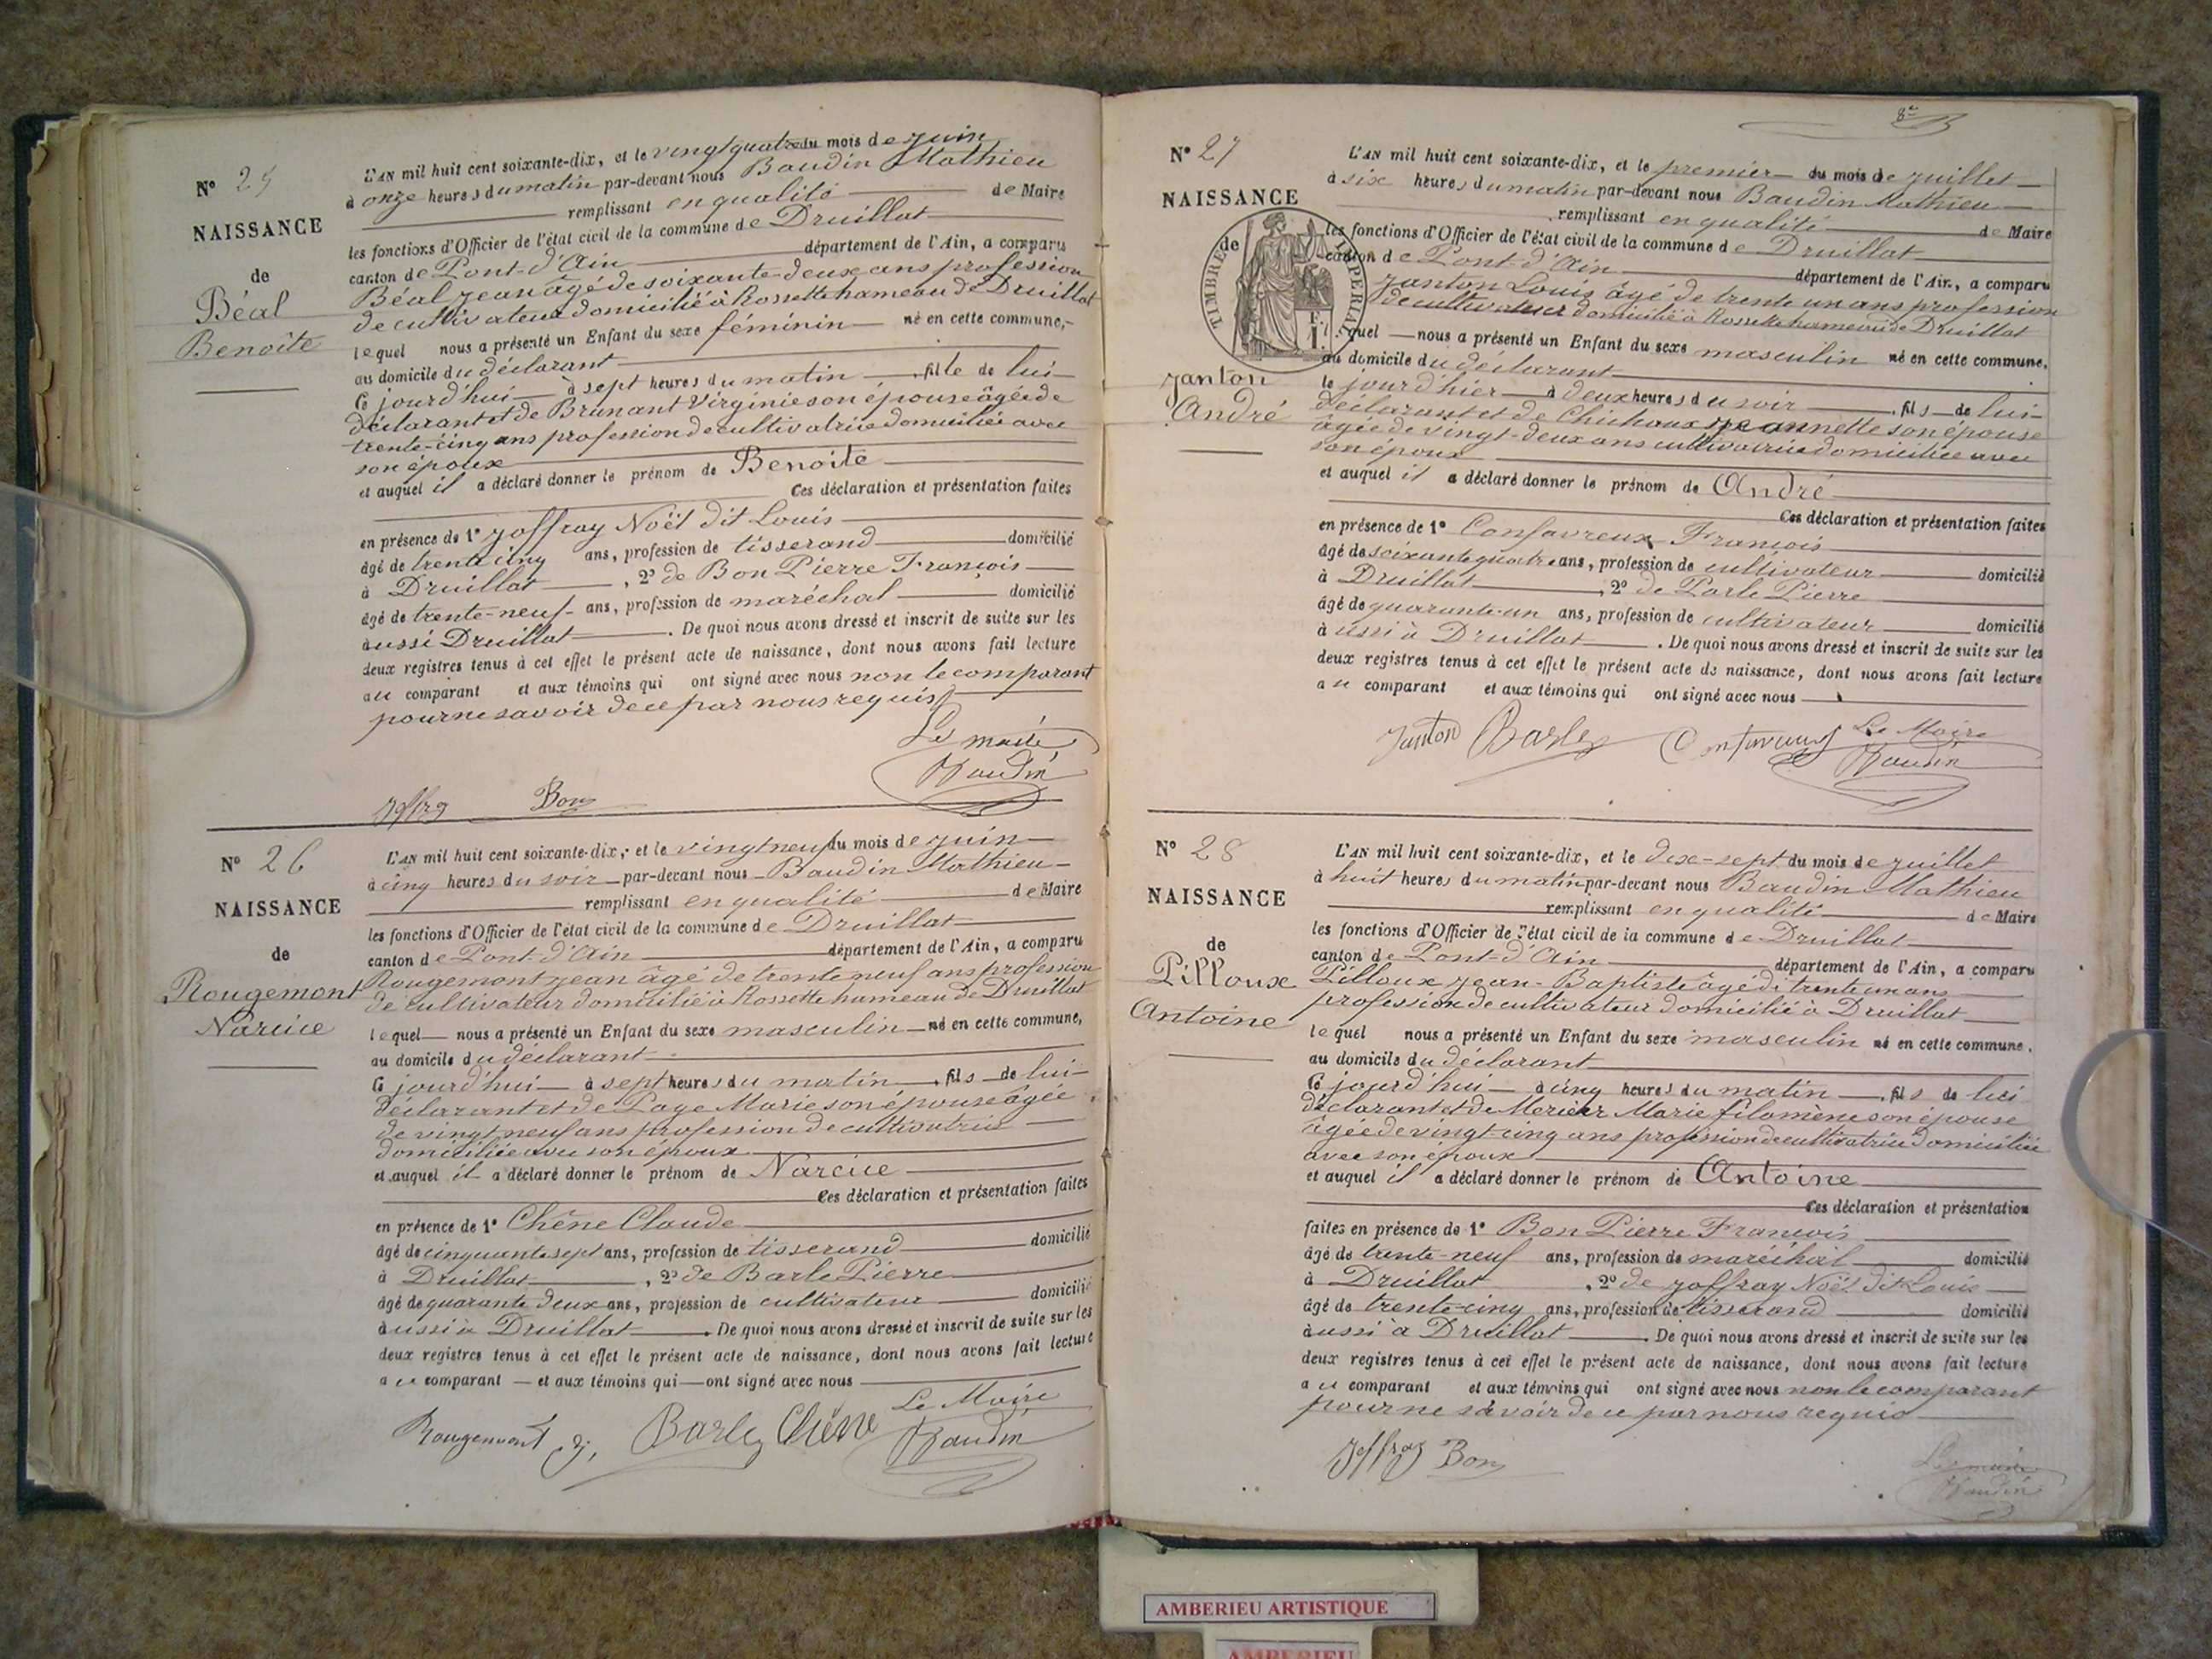 Nº 25
NAISSANCE
de
Béal
Benoite
L'AN mil huit cent soixante-dix, et le vingt quatre du mois de juin
à onze heures du matin par-devant nous Baudin Mathieu
remplissant en qualité de Maire
les fonctions d'Officier de l'état civil de la commune de Druillat
canton de Pont-d'Ain département de l'Ain, a comparu
Béal Jean âgé de soixante-deux ans profession
de cultivateur domicilié à Rossette hameau de Druillat
lequel nous a présenté un Enfant du sexe féminin né en cette commune,
au domicile du déclarant
Ce jourd'hui à sept heures du matin, fille de lui
déclarant et de Brunant Virginie son épouse âgée de
trente-cinq ans profession de cultivatrice domiciliée avec
son époux
et auquel il a déclaré donner le prénom de Benoite
Ces déclaration et présentation faites
en présence de 1º Joffray Noël dit Louis
âgé de trente cinq ans, profession de tisserand domicilié
à Druillat, 2º de Bon Pierre François
âgé de trente-neuf ans, profession de maréchal domicilié
aussi Druillat. De quoi nous avons dressé et inscrit de suite sur les
deux registres tenus à cet effet le présent acte de naissance, dont nous avons fait lecture
au comparant et aux témoins qui ont signé avec nous non le comparant
pour ne savoir de ce par nous requis
Le maire
Baudin
Joffray Bon
Nº 26
NAISSANCE
de
Rougemont
Narcice
L'AN mil huit cent soixante-dix, et le vingt neuf du mois de juin
à cinq heures du soir par-devant nous Baudin Mathieu
remplissant en qualité de Maire
les fonctions d'Officier de l'état civil de la commune de Druillat
canton de Pont-d'Ain département de l'Ain, a comparu
Rougemont Jean âgé de trente neuf ans profession
de cultivateur domicilié à Rossette hameau de Druillat
lequel nous a présenté un Enfant du sexe masculin né en cette commune,
au domicile du déclarant
Ce jourd'hui à sept heures du matin, fils de lui
déclarant et de Page Marie son épouse âgée
de vingt neuf ans profession de cultivatrice
domiciliée avec son époux
et auquel il a déclaré donner le prénom de Narcice
Ces déclaration et présentation faites
en présence de 1º Chêne Claude
âgé de cinquante sept ans, profession de tisserand domicilié
à Druillat, 2º de Barle Pierre
âgé de quarante deux ans, profession de cultivateur domicilié
aussi à Druillat. De quoi nous avons dressé et inscrit de suite sur les
deux registres tenus à cet effet le présent acte de naissance, dont nous avons fait lecture
au comparant et aux témoins qui ont signé avec nous
Le Maire
Rougemont j, Barle Chêne Baudin
8e
Nº 27
NAISSANCE
de
TIMBRE IMPERIAL
1 F.
Janton
André
L'AN mil huit cent soixante-dix, et le premier du mois de juillet
à six heures du matin par-devant nous Baudin Mathieu
remplissant en qualité de Maire
les fonctions d'Officier de l'état civil de la commune de Druillat
canton de Pont-d'Ain département de l'Ain, a comparu
Janton Louis âgé de trente un ans profession
de cultivateur domicilié à Rossette hameau de Druillat
lequel nous a présenté un Enfant du sexe masculin né en cette commune.
au domicile du déclarant
le jourd'hier à deux heures du soir, fils de lui
déclarant et de Chichoux Jeannette son épouse
âgée de vingt-deux ans cultivatrice domiciliée avec
son époux
et auquel il a déclaré donner le prénom de André
Ces déclaration et présentation faites
en présence de 1º Confavreux François
âgé de soixante quatre ans, profession de cultivateur domicilié
à Druillat, 2º de Parle Pierre
âgé de quarante-un ans, profession de cultivateur domicilié
aussi à Druillat. De quoi nous avons dressé et inscrit de suite sur les
deux registres tenus à cet effet le présent acte de naissance, dont nous avons fait lecture
au comparant et aux témoins qui ont signé avec nous
Janton Barle Confavreux Le Maire
Baudin
Nº 28
NAISSANCE
de
Pilloux
Antoine
L'AN mil huit cent soixante-dix, et le dix-sept du mois de juillet
à huit heures du matin par-devant nous Baudin Mathieu
remplissant en qualité de Maire
les fonctions d'Officier de l'état civil de la commune de Druillat
canton de Pont-d'Ain département de l'Ain, a comparu
Pilloux Jean-Baptiste âgé de trente un ans
profession de cultivateur domicilié à Druillat
lequel nous a présenté un Enfant du sexe masculin né en cette commune.
au domicile du déclarant
Ce jourd'hui à cinq heures du matin, fils de lui
déclarant et de Mercier Marie filomène son épouse
âgée de vingt-cinq ans profession de cultivatrice domiciliée
avec son époux
et auquel il a déclaré donner le prénom de Antoine
Ces déclaration et présentation
faites en présence de 1º Bon Pierre François
âgé de trente-neuf ans, profession de maréchal domicilié
à Druillat, 2º de Joffray Noël dit Louis
âgé de trente-cinq ans, profession de tisserand domicilié
aussi à Druillat. De quoi nous avons dressé et inscrit de suite sur les
deux registres tenus à cet effet le présent acte de naissance, dont nous avons fait lecture
au comparant et aux témoins qui ont signé avec nous non le comparant
pour ne savoir de ce par nous requis
Joffray Bon
Le maire
Baudin
AMBERIEU ARTISTIQUE
AMBERIEU